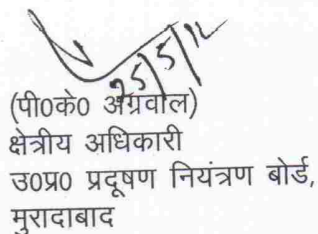 25/5/12
(पी0के0 अग्रवाल)
क्षेत्रीय अधिकारी
उ0प्र0 प्रदूषण नियंत्रण बोर्ड,
मुरादाबाद